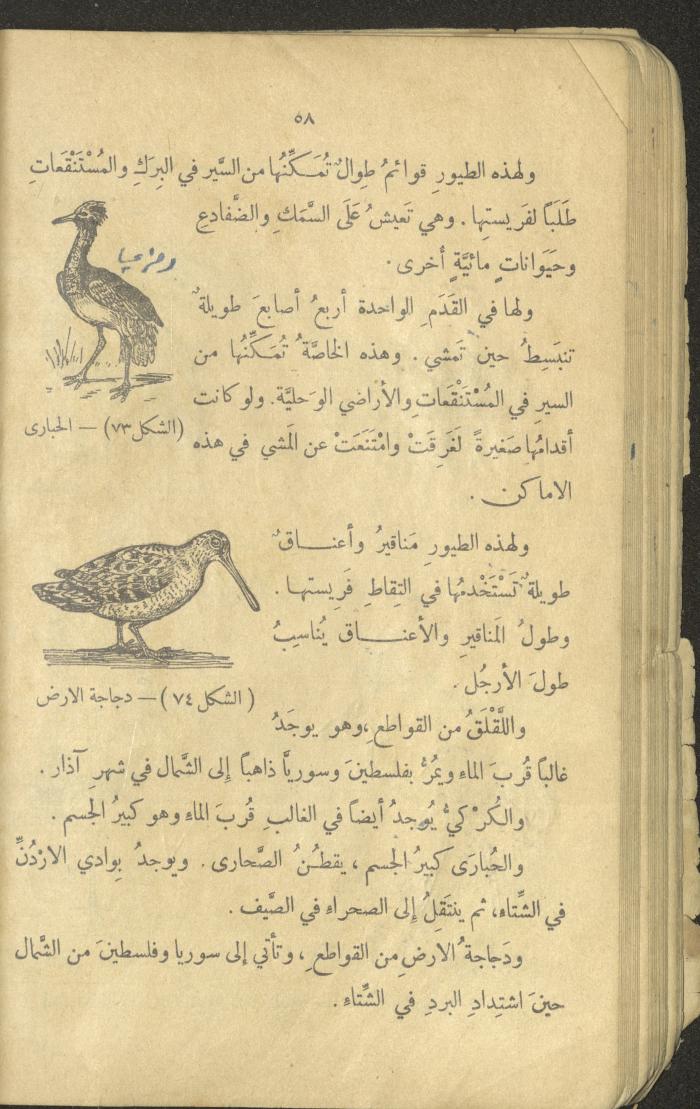 ٥٨
ولهذه الطيورِ قوائمُ طِوالٌ تُمَكِّنُها من السَّير في البِرَكِ والمُسْتَنْقَعاتِ
طَلَبَاً لفَريستِها . وهي تَعيشُ عَلَى السَّمَكِ والضَّفادعِ
وحَيَوَاناتٍ مائيَّةٍ أخرى .
ولها في القَدَمِ الواحدة أربعُ أصابعَ طويلةٌ
تنبَسِطُ حين تَمشي . وهذه الخاصَّةُ تُمَكِّنُها من
السيرِ في المُسْتَنْقَعاتِ والأراضي الوَحليَّة . ولو كانت
أقدامُها صَغيرةً لَغَرِقَتْ وامْتَنَعَتْ عن المَشي في هذه
الاماكن .
(الشكل ٧٣) — الحبارى
ولهذه الطيورِ مَناقيرُ وأعنـاقٌ
طويلةٌ تَسْتَخْدمُها في التِقاطِ فَريستها .
وطولُ المَناقيرِ والأعنـاق يُناسِبُ
طولَ الأرجُل .
(الشكل ٧٤) — دجاجة الارض
واللَّقْلَقُ من القواطعِ ، وهو يوجَدُ
غالباً قُربَ الماءِ ويمُرُّ بفلسطينَ وسوريَّا ذاهباً إلى الشَّمال في شهرِ آذار .
والكُرْكيُّ يُوجدُ أيضاً في الغالبِ قُربَ الماءِ وهو كبيرُ الجسم .
والحُبارَى كبيرُ الجسم ، يقطُـنُ الصَّحارى . ويوجدُ بوادي الارْدُنِّ
في الشِّتاءِ، ثم ينتَقِلُ إلى الصحراءِ في الصَّيف .
ودَجاجةُ الارضِ من القواطعِ ، وتأتي إلى سوريا وفلسطينَ من الشَّمال
حينَ اشتِدادِ البردِ في الشِّتاءِ .